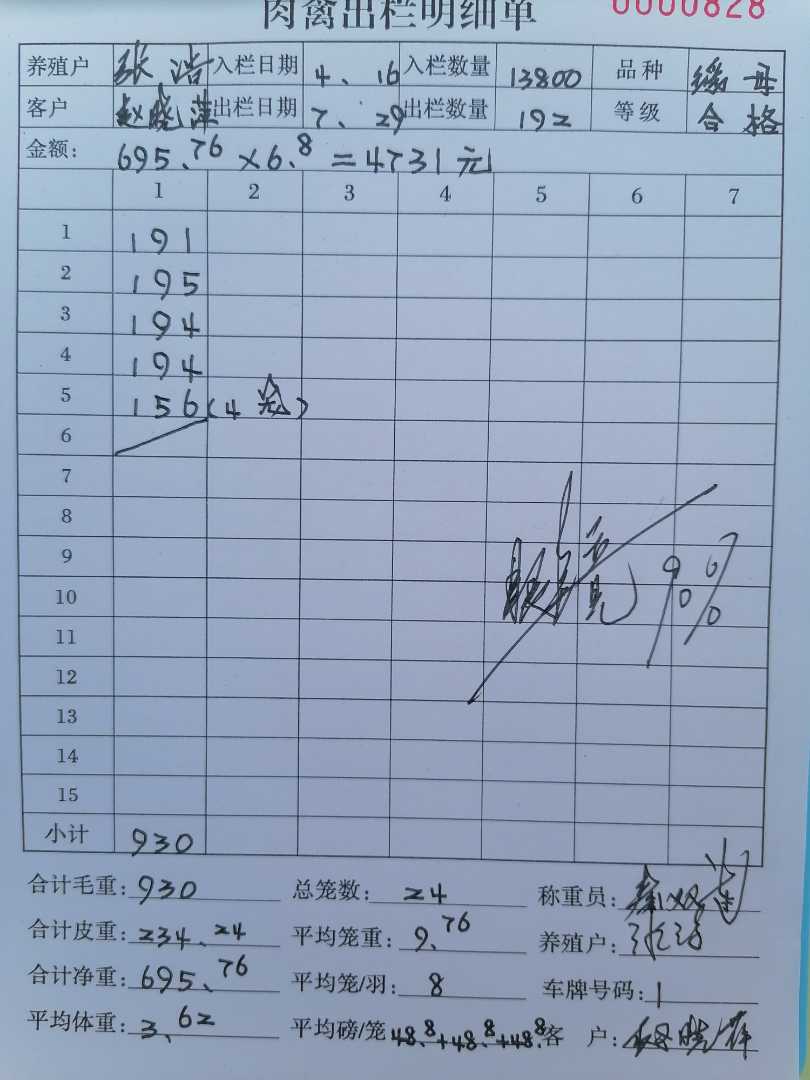 肉禽出栏明细单 0000828
养殖户 张浩 入栏日期 4、16 入栏数量 13800 品种 缘母
客户 赵晓萍 出栏日期 7、29 出栏数量 192 等级 合格
金额: 695、76×6.8=4731元
1 2 3 4 5 6 7
1 191
2 195
3 194
4 194
5 156(4笼)
6
7
8
9
10
11
12
13
14
15
小计 930
合计毛重: 930 总笼数: 24 称重员:
合计皮重: 234、24 平均笼重: 9、76 养殖户: 张浩
合计净重: 695、76 平均笼/羽: 8 车牌号码: 1
平均体重: 3、62 平均磅/笼 48.8+48.8+48.8 客户: 赵晓萍